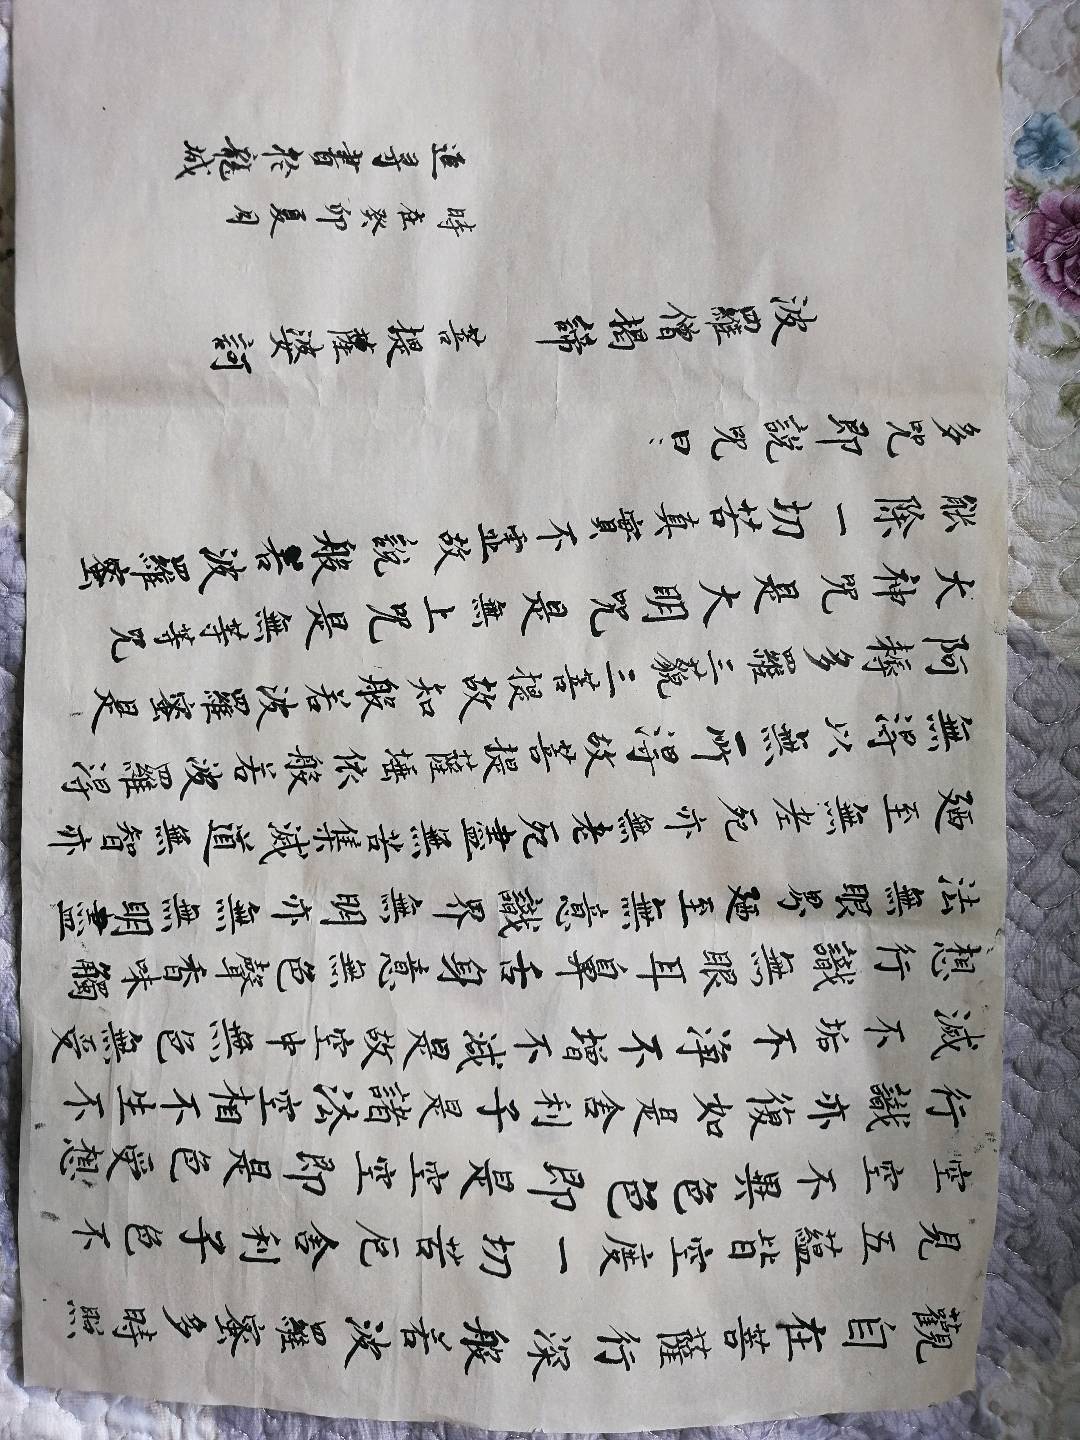 觀自在菩薩行深般若波羅蜜多時照
見五蘊皆空度一切苦厄舍利子色不
空空不異色色即是空空即是色受想
行識亦復如是舍利子是諸法空相不生不
滅不垢不淨不增不減是故空中無色無受
想行識無眼耳鼻舌身意無色聲香味觸
法無眼界廼至無意識界無明亦無無明盡
廼至無老死亦無老死盡無苦集滅道無智亦
無得以無所得故菩提薩埵依般若波羅得
阿耨多羅三藐三菩提故知般若波羅蜜是
大神咒是大明咒是無上咒是無等等咒
能除一切苦真實不虛故說般若波羅蜜
多咒即說咒曰：
波羅僧揭諦 菩提薩婆訶
時在癸卯夏月
追尋書於龍城